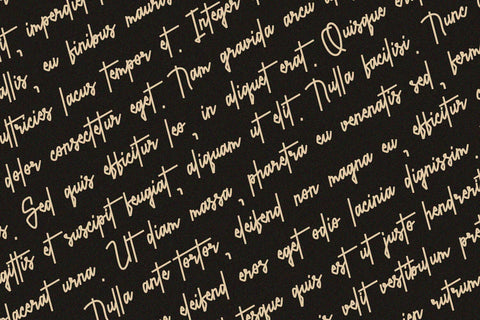 it, imperdiet
allis, eu finibus mauris
ultricies lacus tempor et. Integer
dolor consectetur eget. Nam gravida arcu
Sed quis efficitur leo, in aliquet erat. Quisque
sagittis et suscipit feugiat, aliquam ut elit. Nulla facilisi. Nunc
placerat urna. Ut diam massa, pharetra eu venenatis sed, ferm
Nulla ante tortor, eleifend non magna eu, efficitur
eleifend eros eget odio lacinia dignissim.
tesque quis est ut justo hendrerit
velit vestibulum pre
ien rutrum